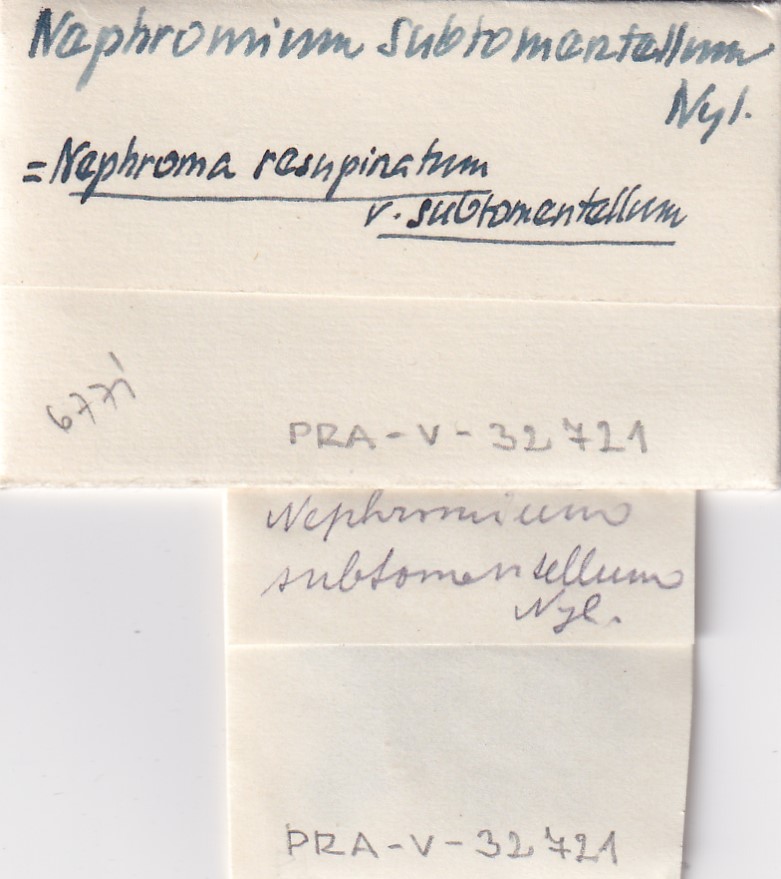 Nephromium subtomentellum
Nyl.
=Nephroma resupinatum
v. subtomentellum
PRA-V-32721
Nephromium
subtomentellum
Nyl.
PRA-V-32721